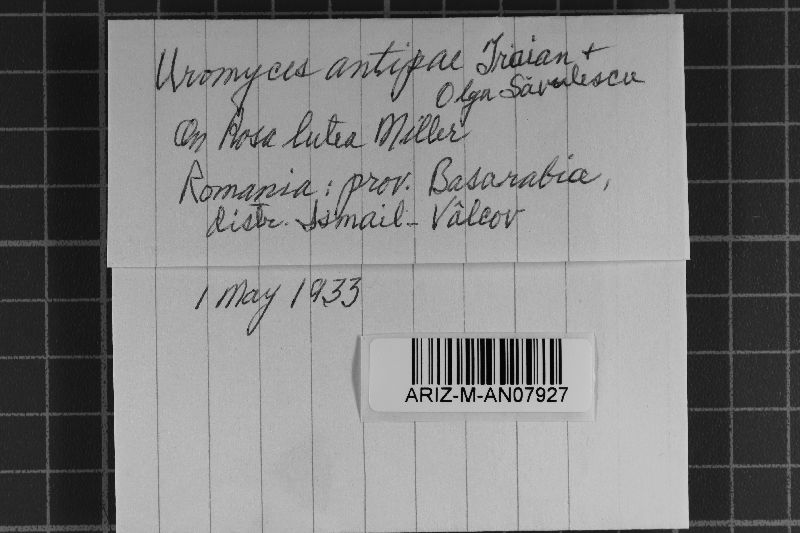 Uromyces antipae Traian +
Olga Săvulescu
On Rosa lutea Miller
Romania: prov. Basarabia,
distr. Ismail - Vâlcov
1 May 1933
ARIZ-M-AN07927